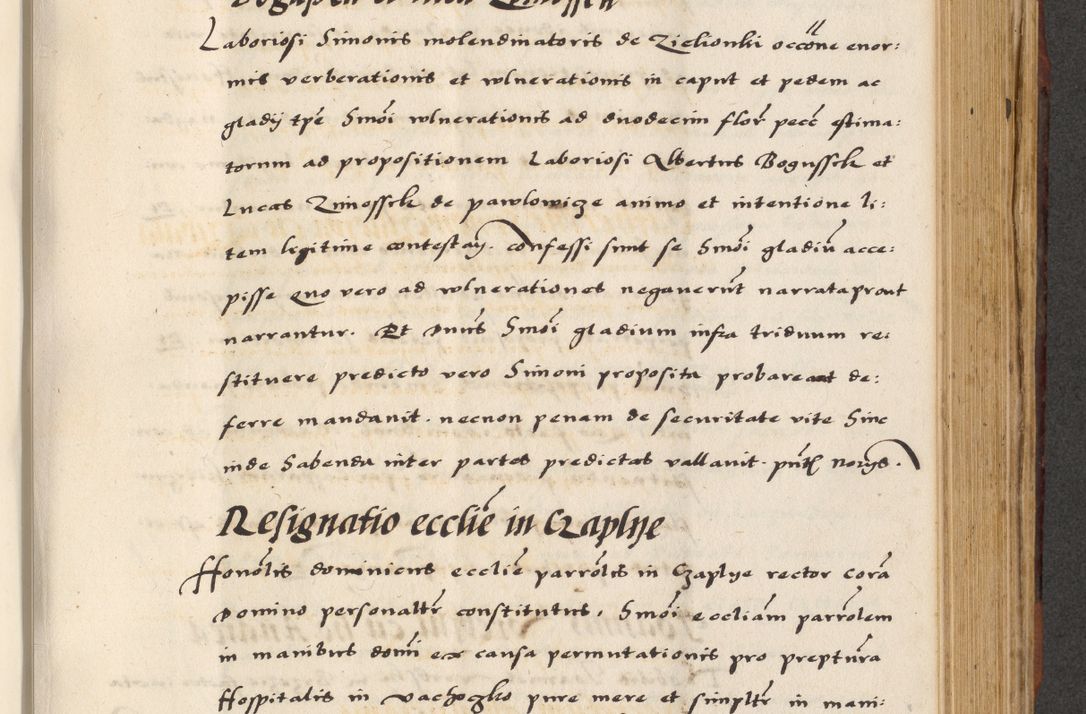 Laboriosi Simonis molendinatoris de Zielionki occōne enor:
mis verberationis et vlnerationis in caput et pedem ac
gladij tpē hmōi vlnerationis ad duodecim flor pecc estima:
torum ad propositionem Laboriosi Albertus Bogussek et
Lucas Zimossek de pawlowicze animo et intentione li:
tem legitime contestan. confessi sunt se hmōi gladiū acce:
pisse Quo vero ad vlnerationes negaverūt narrata prout
narrantur. Et Dnus hmōi gladium infra triduum re:
stituere predicto vero Simoni proposita probare de:
ferre mandauit. necnon penam de securitate vite hinc
inde habenda inter partes predictas vallauit. pntī Notijs.
Resignatio ecclie in Czaplye
Honōlis dominicus ecclie parrōlis in Czaplye rector corā
Domino personaltr constitutus. hmōi eccliam parrōlem
in manibus domi ex causa permutationis pro preptura
Hospitalis in pure mere et simpltr in mani: